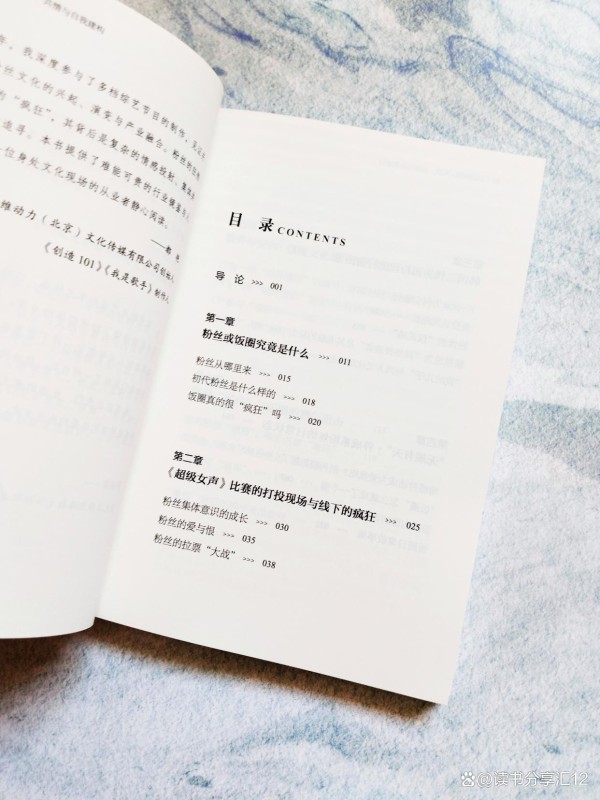 共情与自我建构
我深度参与了多档综艺节目的制作，见证
丝文化的兴起、演变与产业融合。粉丝的狂热
"疯狂"，其背后是复杂的情感投射、集体
追寻。本书提供了难能可贵的行业
位身处文化现场的从业者静心阅读。
维动力（北京）文化传媒有限公司创始人
《创造 101》《我是歌手》制作人
目 录 CONTENTS
导 论 >>> 001
第一章
粉丝或饭圈究竟是什么 >>> 011
粉丝从哪里来 >>> 015
初代粉丝是什么样的 >>> 018
饭圈真的很“疯狂”吗 >>> 020
第二章
《超级女声》比赛的打投现场与线下的疯狂 >>> 025
粉丝集体意识的成长 >>> 030
粉丝的爱与恨 >>> 035
粉丝的拉票“大战” >>> 038
读书分享汇12